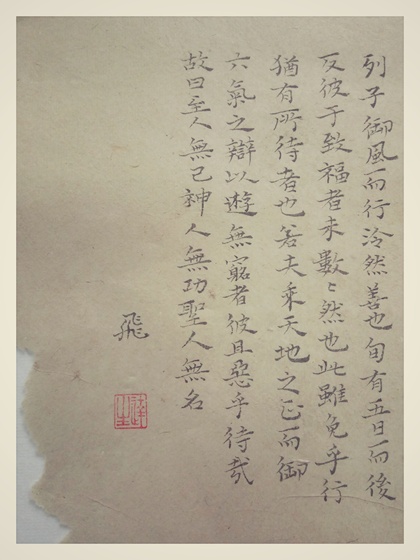 列子御風而行泠然善也旬有五日而後
反彼于致福者未數〻然也此雖免乎行
猶有所待者也若夫乘天地之正而御
六氣之辯以遊無窮者彼且惡乎待哉
故曰至人無己神人無功聖人無名
飛